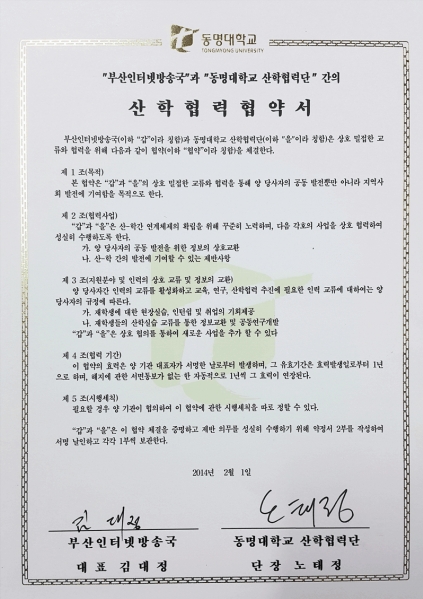 동명대학교
TONGMYONG UNIVERSITY
"부산인터넷방송국"과 "동명대학교 산학협력단" 간의
산 학 협 력 협 약 서
부산인터넷방송국(이하 "갑"이라 칭함)과 동명대학교 산학협력단(이하 "을"이라 칭함)은 상호 밀접한 교
류와 협력을 위해 다음과 같이 협약(이하 "협약"이라 칭함)을 체결한다.
제 1 조(목적)
본 협약은 "갑"과 "을"의 상호 밀접한 교류와 협력을 통해 양 당사자의 공동 발전뿐만 아니라 지역사
회 발전에 기여함을 목적으로 한다.
제 2 조(협력사업)
"갑"과 "을"은 산-학간 연계체제의 확립을 위해 꾸준히 노력하며, 다음 각호의 사업을 상호 협력하여
성실히 수행하도록 한다.
가. 양 당사자의 공동 발전을 위한 정보의 상호교환
나. 산-학 간의 발전에 기여할 수 있는 제반사항
제 3 조(지원분야 및 인력의 상호 교류 및 정보의 교환)
양 당사자간 인력의 교류를 활성화하고 교육, 연구, 산학협력 추진에 필요한 인력 교류에 대하여는 양
당사자의 규정에 따른다.
가. 재학생에 대한 현장실습, 인턴쉽 및 취업의 기회제공
나. 재학생들의 산학실습 교류를 통한 정보교환 및 공동연구개발
"갑"과 "을"은 상호 협의를 통하여 새로운 사업을 추가 할 수 있다.
제 4 조(협력 기간)
이 협약의 효력은 양 기관 대표자가 서명한 날로부터 발생하며, 그 유효기간은 효력발생일로부터 1년
으로 하며, 해지에 관한 서면통보가 없는 한 자동적으로 1년씩 그 효력이 연장된다.
제 5 조(시행세칙)
필요할 경우 양 기관이 협의하여 이 협약에 관한 시행세칙을 따로 정할 수 있다.
"갑"과 "을"은 이 협약 체결을 증명하고 제반 의무를 성실히 수행하기 위해 약정서 2부를 작성하여
서명 날인하고 각각 1부씩 보관한다.
2014년 2월 1일
김 대 정 노 태 정
부산인터넷방송국 동명대학교 산학협력단
대 표 김 대 정 단 장 노 태 정